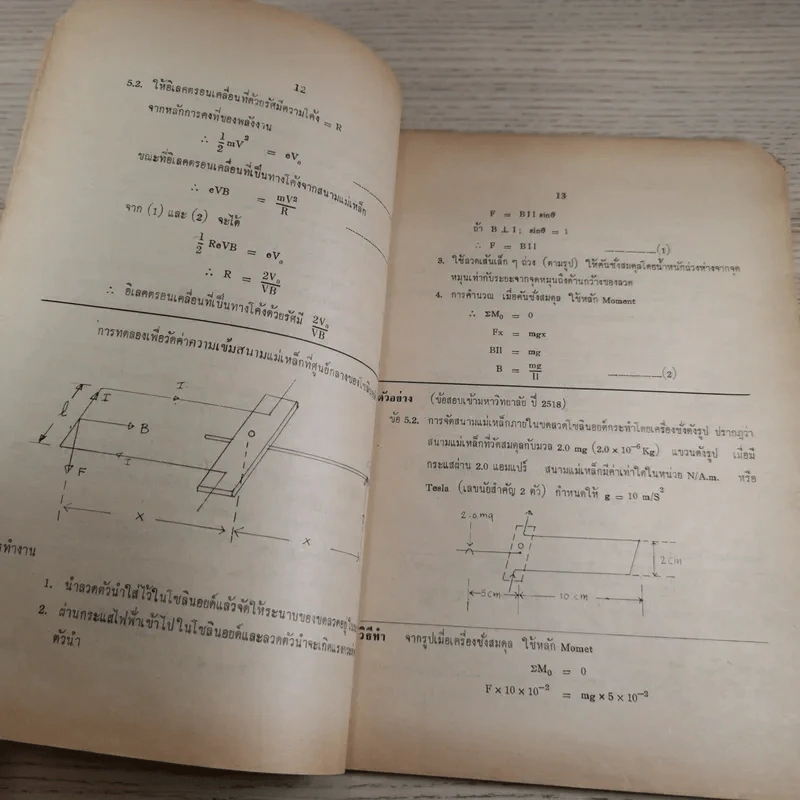 12
5.2. ให้อิเลคตรอนเคลื่อนที่ด้วยรัศมีความโค้ง = R
จากหลักการคงที่ของพลังงาน
∴ ½mV² = eV₀
ขณะที่อิเลคตรอนเคลื่อนที่เป็นทางโค้งจากสนามแม่เหล็ก
∴ eVB = mV²/R
จาก (1) และ (2) จะได้
½ ReVB = eV₀
∴ R = 2V₀/VB
∴ อิเลคตรอนเคลื่อนที่เป็นทางโค้งด้วยรัศมี 2V₀/VB
การทดลองเพื่อวัดค่าความเข้มสนามแม่เหล็กที่ศูนย์กลางของ
I
I
l
B
O
F
I
X
X
1. นำลวดตัวนำใส่ไว้ในโซลินอยด์แล้วจัดให้ระนาบของขดลวดอยู่
2. ผ่านกระแสไฟฟ้าเข้าไปในโซลินอยด์และลวดตัวนำจะเกิดแรง
ตัวนำ
13
F = BIl sinθ
ถ้า B ⊥ I ; sinθ = 1
∴ F = BIl (1)
3. ใช้ลวดเส้นเล็ก ๆ ถ่วง (ตามรูป) ให้คันชั่งสมดุลโดยน้ำหนักถ่วงห่างจากจุด
หมุนเท่ากับระยะจากจุดหมุนถึงด้านกว้างของลวด
4. การคำนวณ เมื่อคันชั่งสมดุล ใช้หลัก Moment
∴ ΣM₀ = 0
Fx = mgx
BIl = mg
B = mg/Il (2)
ตัวอย่าง (ข้อสอบเข้ามหาวิทยาลัย ปี 2518)
ข้อ 5.2. การจัดสนามแม่เหล็กภายในขดลวดโซลินอยด์กระทำโดยเครื่องชั่งดังรูป ปรากฏว่า
สนามแม่เหล็กที่วัดสมดุลกับมวล 2.0 mg (2.0 x 10⁻⁶ Kg) แขวนดังรูป เมื่อมี
กระแสผ่าน 2.0 แอมแปร์ สนามแม่เหล็กมีค่าเท่าใดในหน่วย N/A.m. หรือ
Tesla (เลขนัยสำคัญ 2 ตัว) กำหนดให้ g = 10 m/S²
2.0mg
O
2cm
5cm
10 cm
วิธีทำ จากรูปเมื่อเครื่องชั่งสมดุล ใช้หลัก Momet
ΣM₀ = 0
F x 10 x 10⁻² = mg x 5 x 10⁻²